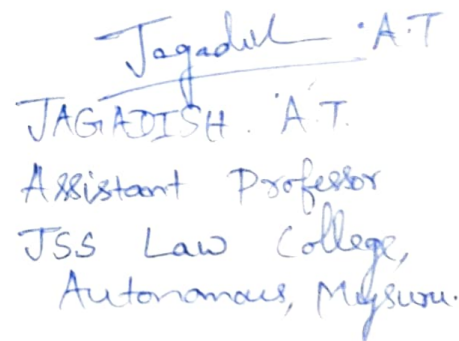 Jagadish .A.T
JAGADISH. A.T.
Assistant Professor
JSS Law College,
Autonomous, Mysuru.